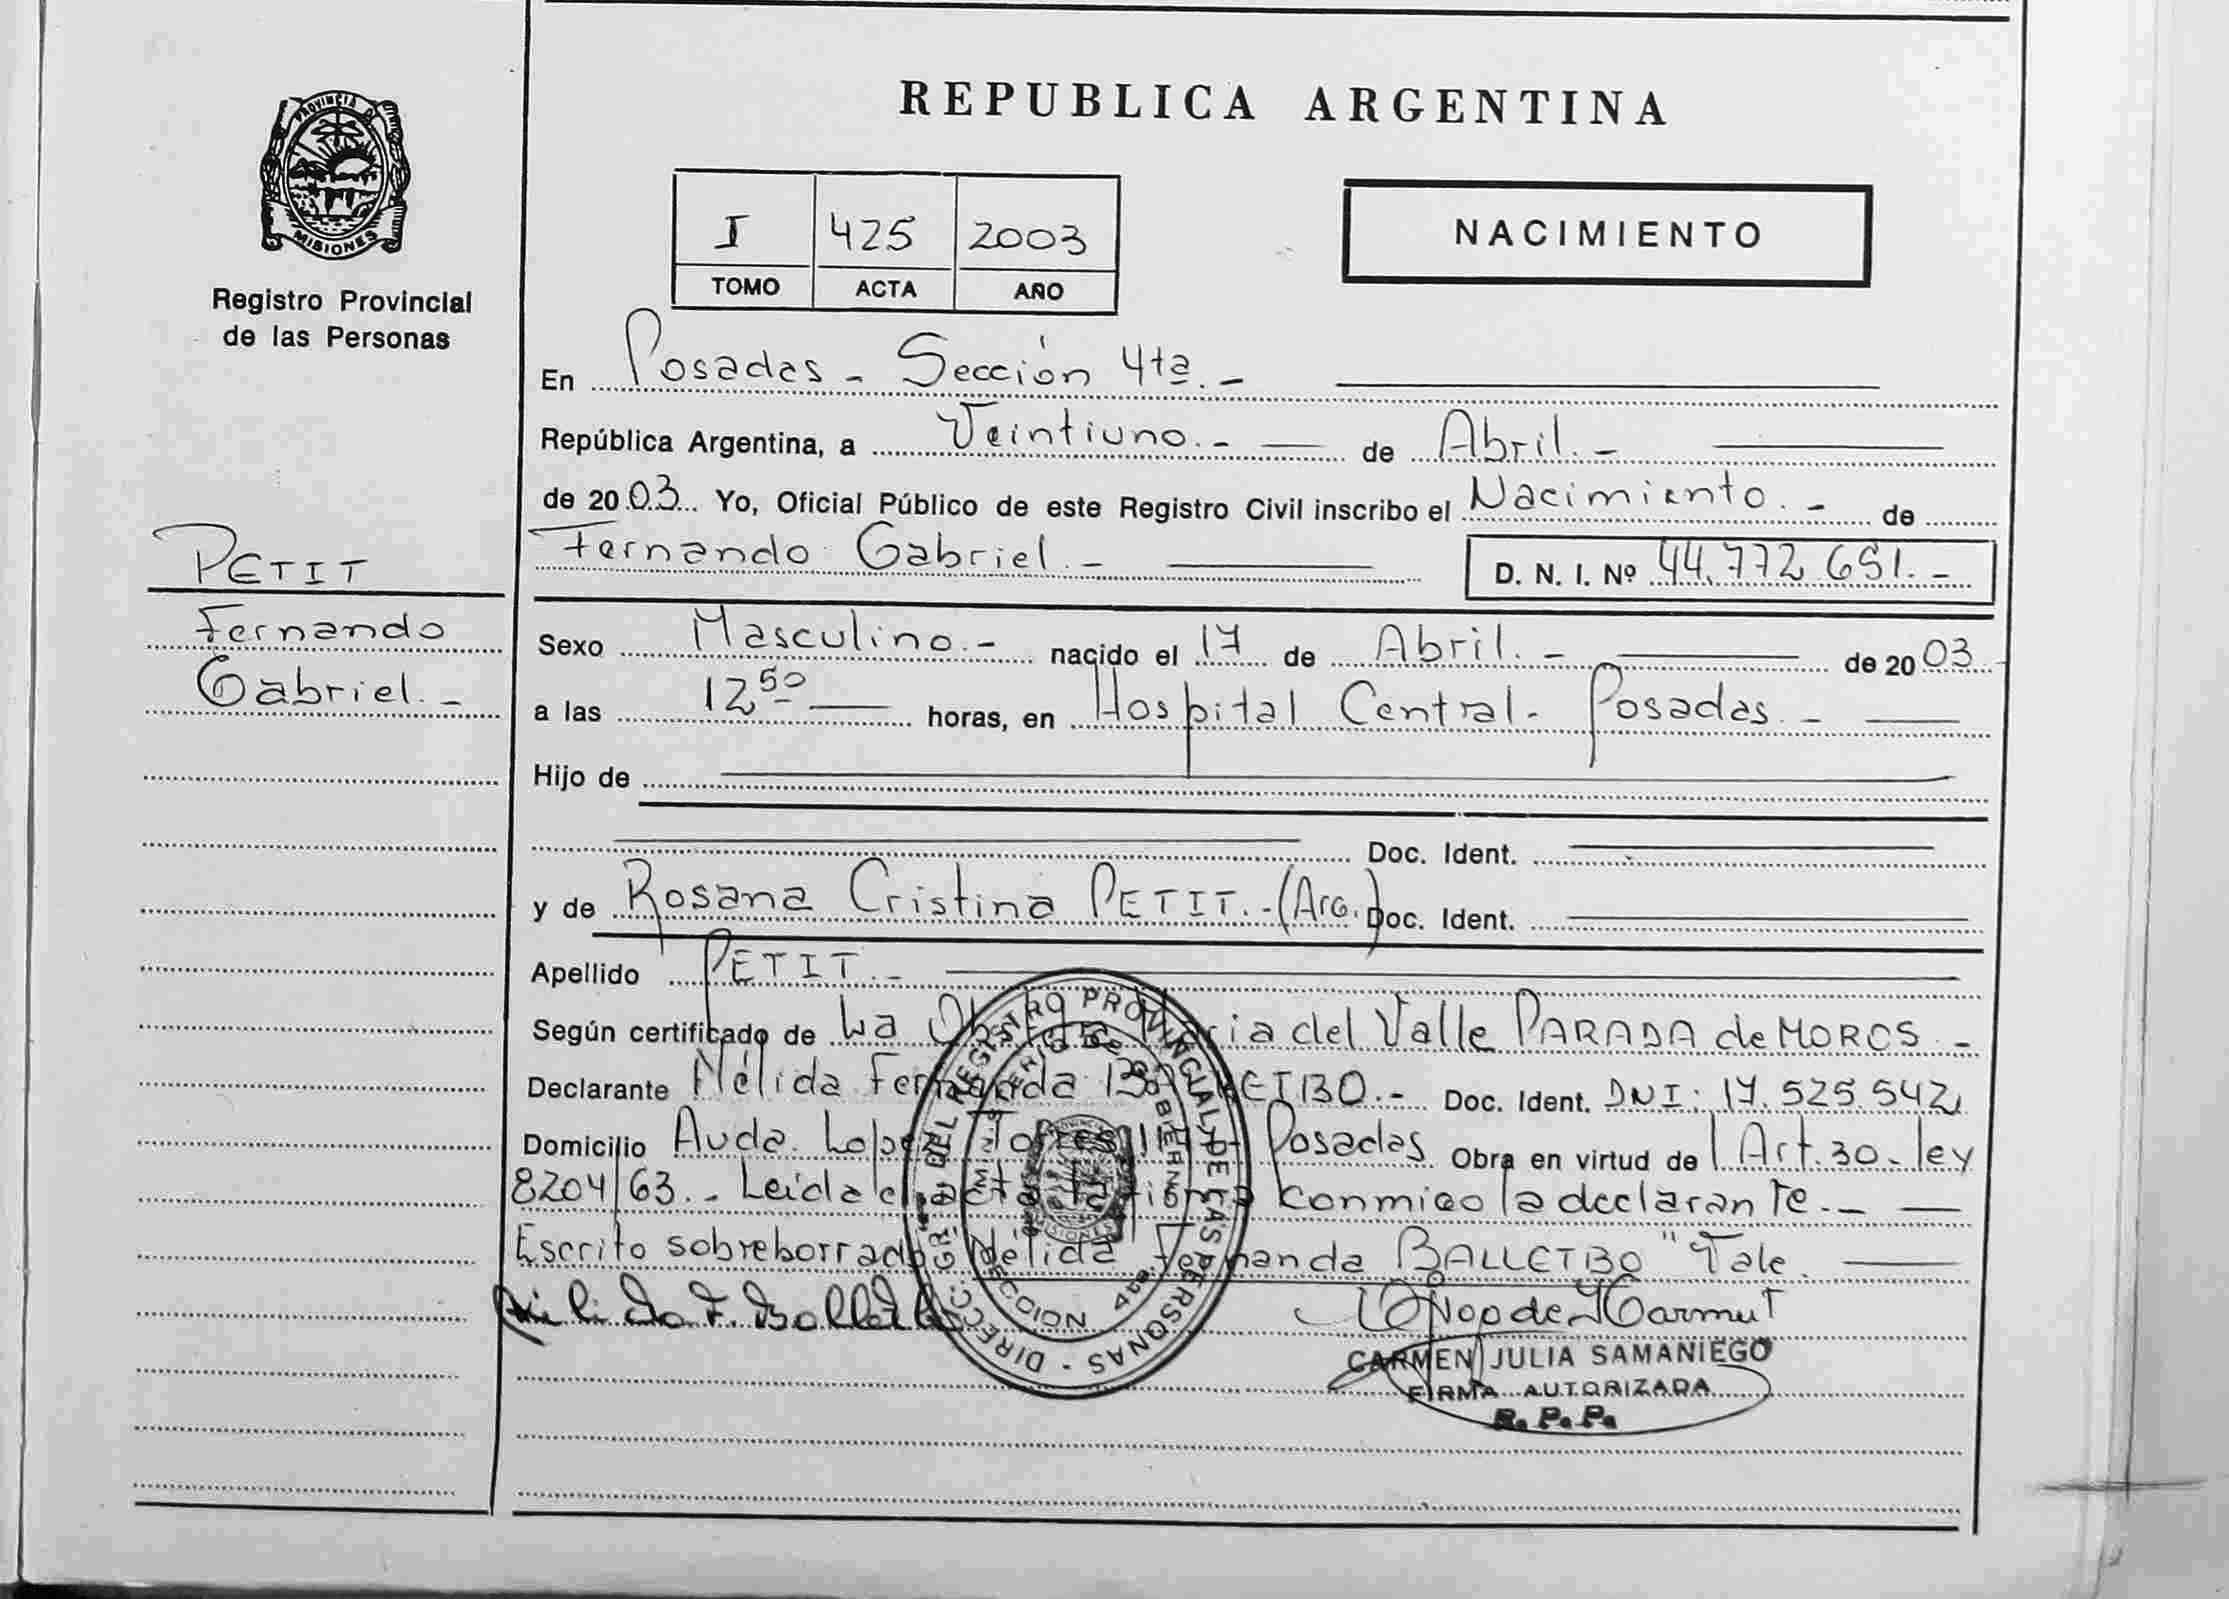 REPUBLICA ARGENTINA
PROVINCIA D
MISIONES
Registro Provincial
de las Personas
I 425 2003
TOMO ACTA AÑO
NACIMIENTO
En Posadas - Sección 4ta. -
República Argentina, a Veintiuno. - de Abril. -
de 2003 Yo, Oficial Público de este Registro Civil inscribo el Nacimiento. - de
Fernando Gabriel. - D. N. I. Nº 44.772.651. -
PETIT
Fernando
Gabriel. -
Sexo Masculino. - nacido el 17 de Abril. - de 2003
a las 12 50 horas, en Hospital Central - Posadas. -
Hijo de
Doc. Ident.
y de Rosana Cristina PETIT. - (Arg.) Doc. Ident.
Apellido PETIT. -
Según certificado de La del Valle PARADA de MOROS. -
Declarante Nélida Fernanda . - Doc. Ident. DNI: 17.525.542
Domicilio Avda. Lopez Torres Posadas Obra en virtud del Art. 30 - ley
8204/63. - Leída el acta la firma conmigo la declarante. -
Escrito sobreborrado "Nélida Fernanda BALLETBO" Vale.
CARMEN JULIA SAMANIEGO
FIRMA AUTORIZADA
R. P. P.
DIRECC. GRAL. DEL REGISTRO PROVINCIAL DE LAS PERSONAS
SECCION 4ta.